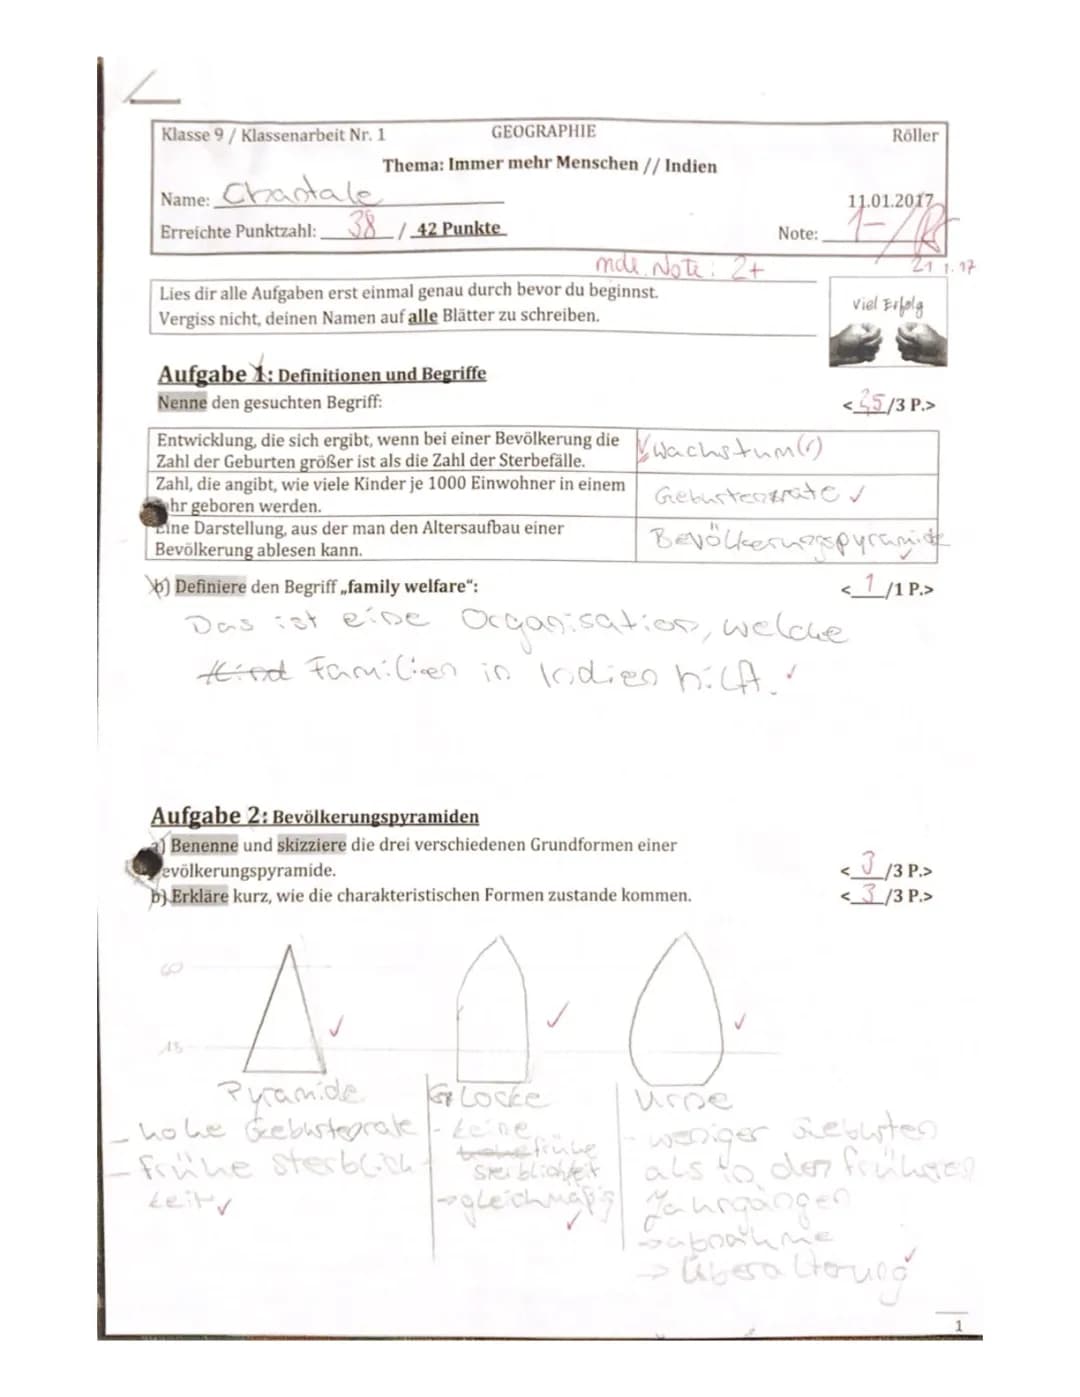 Klasse 9 / Klassenarbeit Nr. 1 GEOGRAPHIE Röller
Thema: Immer mehr Menschen // Indien
Name: Chantale 11.01.2017
Erreichte Punktzahl: 38 / 42 Punkte Note: 1-/
mdl. Note: 2+ 21.1.17
Lies dir alle Aufgaben erst einmal genau durch bevor du beginnst.
Vergiss nicht, deinen Namen auf alle Blätter zu schreiben.
Viel Erfolg
Aufgabe 1: Definitionen und Begriffe
Nenne den gesuchten Begriff: < 2,5/3 P.>
Entwicklung, die sich ergibt, wenn bei einer Bevölkerung die
Zahl der Geburten größer ist als die Zahl der Sterbefälle.
Wachstum(r)
Zahl, die angibt, wie viele Kinder je 1000 Einwohner in einem
hr geboren werden.
Geburtenrate ✓
Eine Darstellung, aus der man den Altersaufbau einer
Bevölkerung ablesen kann.
Bevölkerungspyramide
b) Definiere den Begriff „family welfare": < 1 /1 P.>
Das ist eine Organisation, welche
Kind Familien in Indien hilft. ✓
Aufgabe 2: Bevölkerungspyramiden
a) Benenne und skizziere die drei verschiedenen Grundformen einer
evölkerungspyramide. < 3 /3 P.>
b) Erkläre kurz, wie die charakteristischen Formen zustande kommen. < 3 /3 P.>
60
15
Pyramide
- hohe Geburtenrate
- frühe Sterblich
keit ✓
Glocke
- keine
hohe frühe
Sterblichkeit
→ gleichmäßig
✓
Urne
- weniger Geburten
als in den früheren
Jahrgängen
→ abnahme
→ Überalterung ✓
1